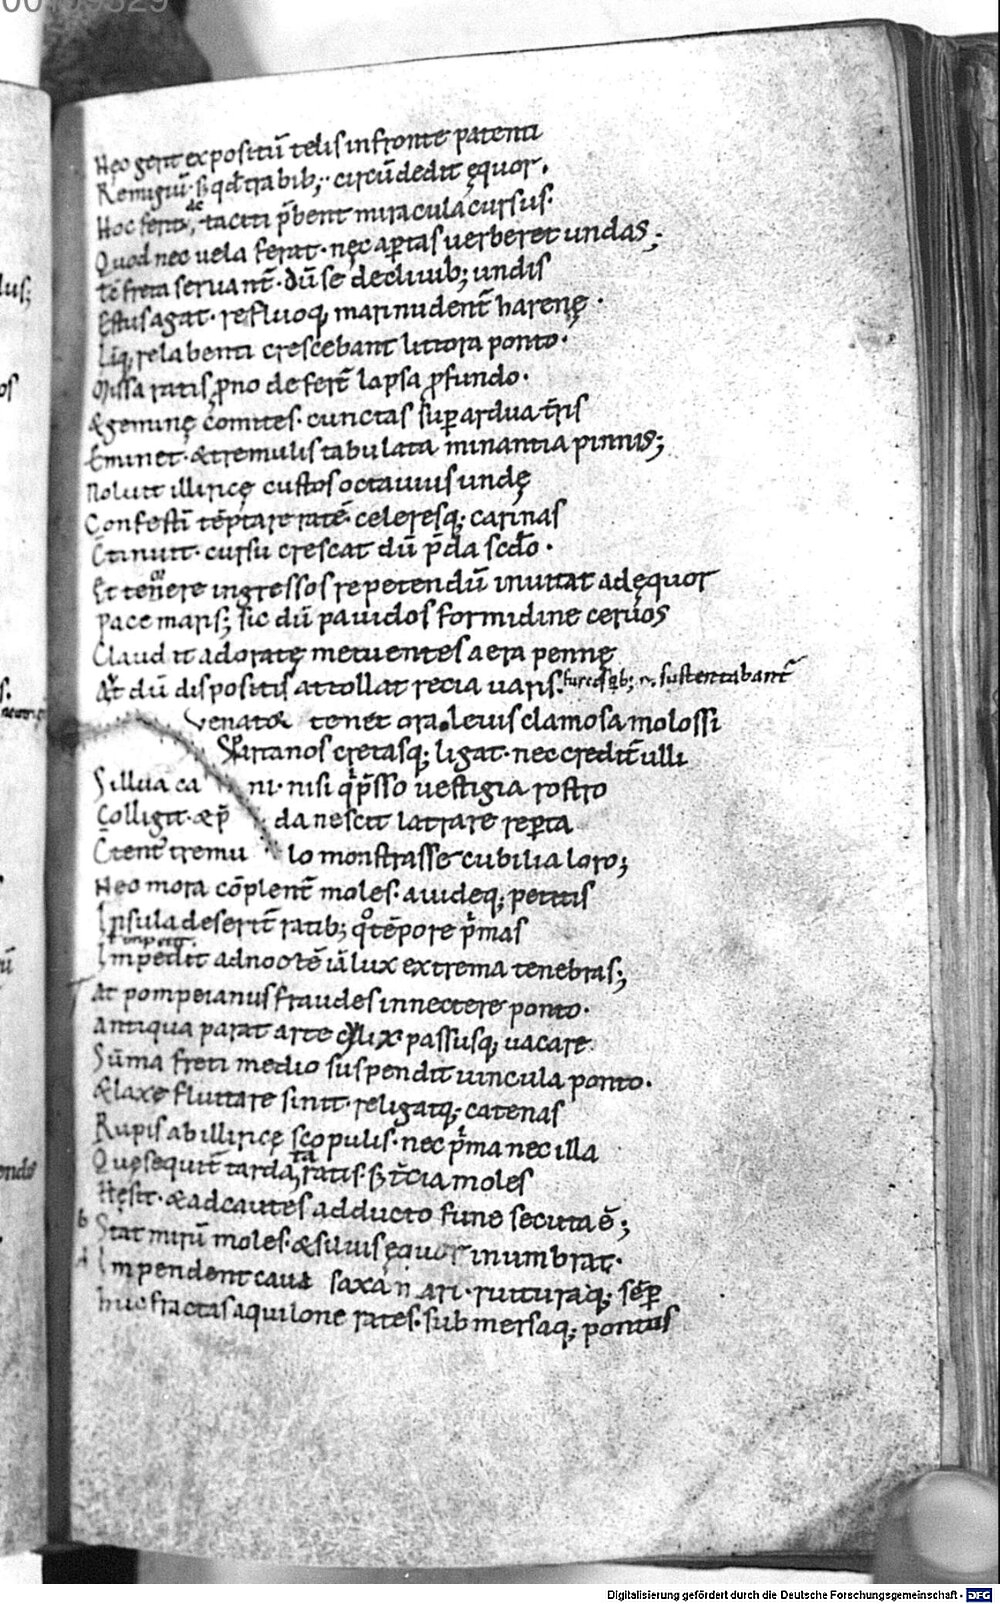 Nec gerit expositū telis infronte patenti
Remigiū. sꝫ qđ trabibꝫ. circūdedit ęquor.
Hoc ferit, ac taciti p̄bent miracula cursus.
Quod nec uela ferat. nec aꝑtas uerberet undas;
Tc̄ freta seruant̄. dū se decliuibꝫ undis
Estus agat. refluoqꝫ mari nudent̄ harenę.
Iāqꝫ relabenti crescebant littora ponto.
Missa ratis ꝓno defert̄ lapsa ꝓfundo.
&geminę comites. cunctas suꝑ ardua tr̄ris
Eminet. &tremulis tabulata minantia pinnis;
Noluit illiricę custos octauius undę
Confestī tēptare ratē. celeresqꝫ carinas
Ctinuit. cursu crescat dū p̄da scđo.
Et temere ingressos repetendū inuitat adęquor
Pace maris; sic dū pauidos formidine ceruos
Claudit adoratę metuentes aera pennę
Aut dū dispositis attollat recia uaris. furcis qibꝫ r. sustentabant̄
Venator tenet ora leuis clamosa molossi
Spartanos cretasqꝫ ligat. nec credit̄ ulli
Sillua cani. nisi q p̄sso uestigia rostro
Colligit. &p̄da nescit latrare reꝑta
Ctent' tremulo monstrasse cubilia loro;
Nec mora cōplent̄ moles. auideqꝫ petitis
Insula deserit̄ ratibꝫ qo tēpore p̄mas
Impedit adnoctē iā lux extrema tenebras;
At pompeianus fraudes innectere ponto.
Antiqua parat arte cilix. passusqꝫ uacare
Sūma freti medio suspendit uincula ponto.
&laxe fluitare sinit. religatqꝫ catenas
Rupis ab illiricę scopulis. nec p̄ma nec illa
Quę sequit̄ tardata ratis. sꝫ tr̄cia moles
Hęsit. &adcautes adducto fune secuta ē;
b Stat mirū moles. &siluis ęquor inumbrat.
a Impendent caua saxa mari. ruituraqꝫ sēꝑ
huc fractas aquilone rates. submersaqꝫ pontus
Digitalisierung gefördert durch die Deutsche Forschungsgemeinschaft - DFG